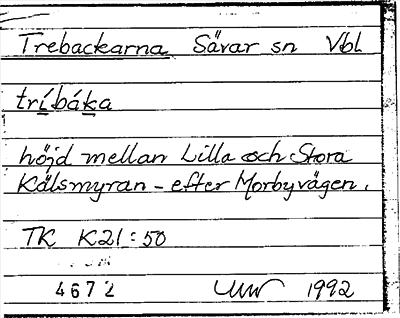 Trebackarna Sävar sn Vbl
tríbáka
höjd mellan Lilla och Stora
Kälsmyran - efter Morbyvägen.
TK K21:50
4672 1992